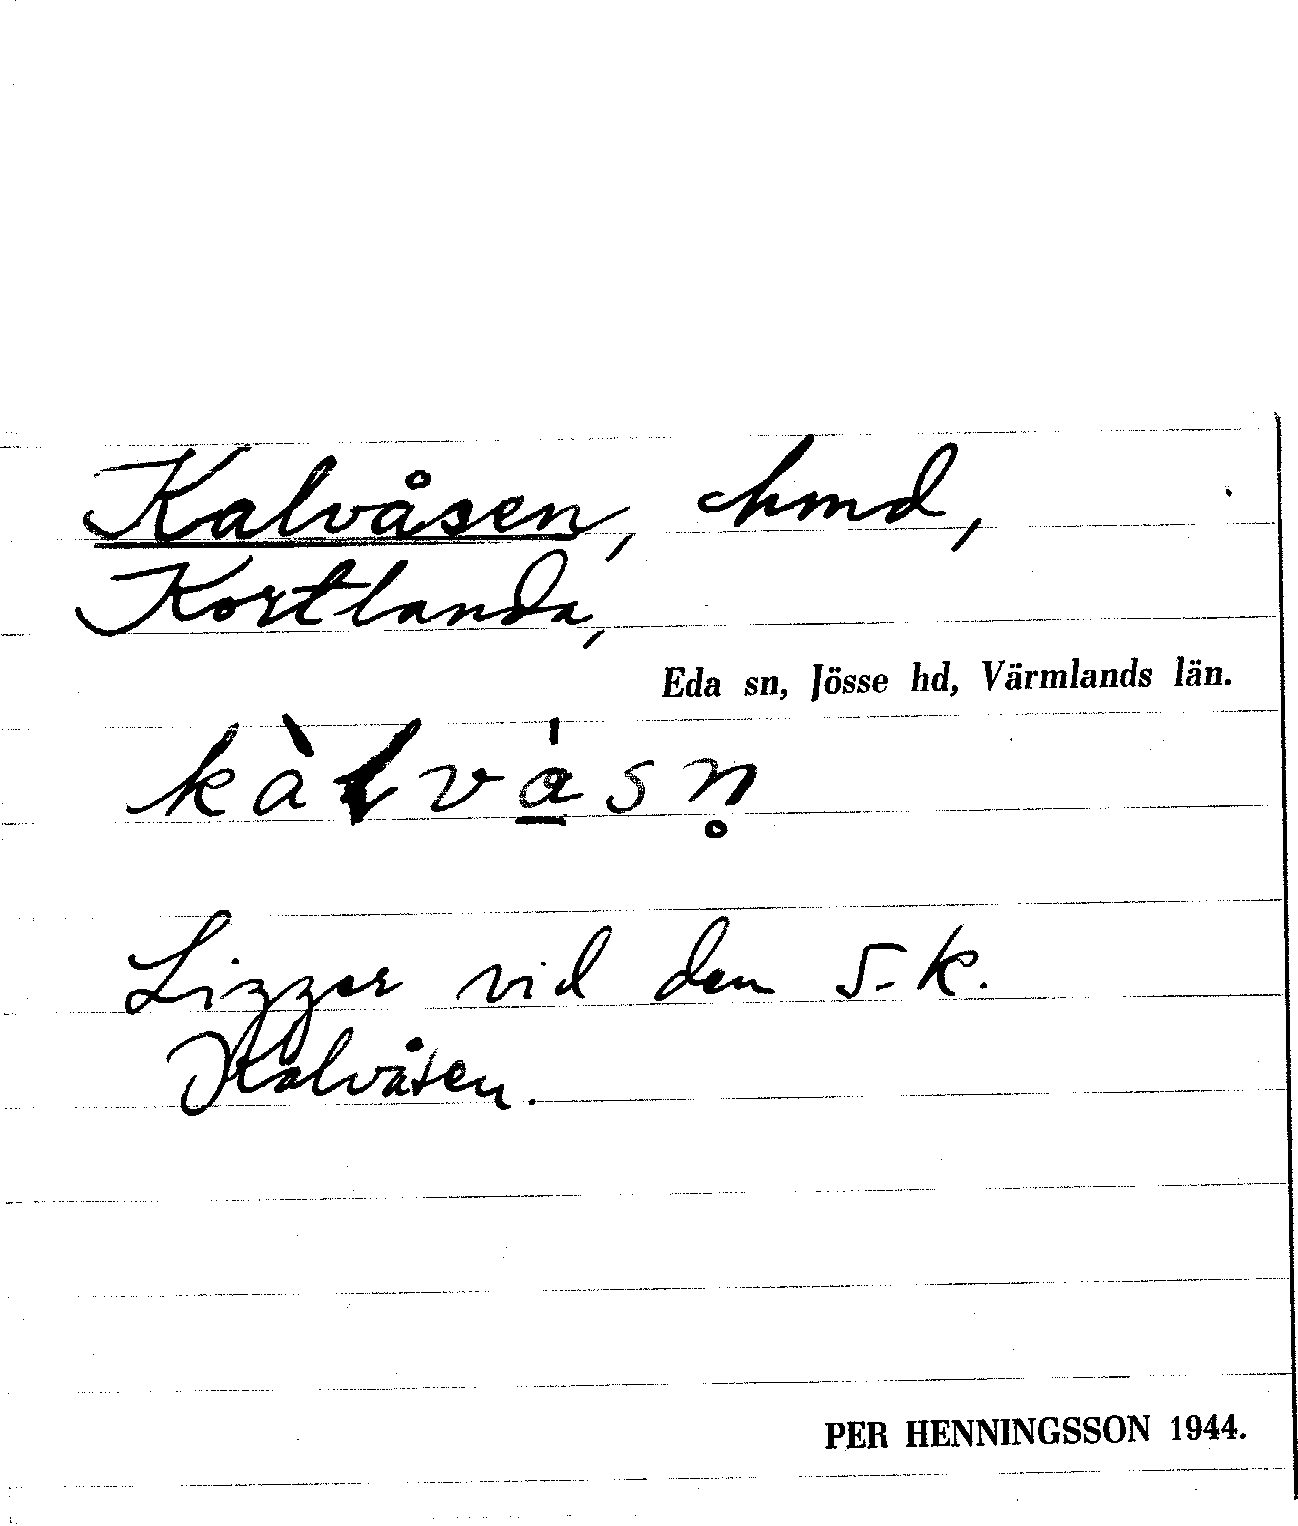 Kalvåsen, hmd,
Kortlanda,
Eda sn, Jösse hd, Värmlands län.
kàlvá̱sn̥
Ligger vid den s.k.
Kalvåsen.
PER HENNINGSSON 1944.